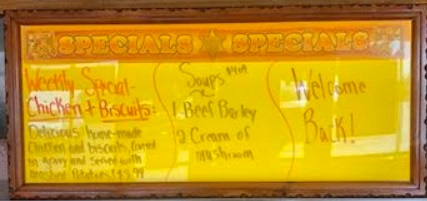 SPECIALS SPECIALS
Weekly Special-
Chicken + Biscuits:
Delicious home-made
Chicken and biscuits,
in gravy and served with
mashed Potatoes
Soups
1. Beef Barley
2. Cream of
mushroom
Welcome
Back!